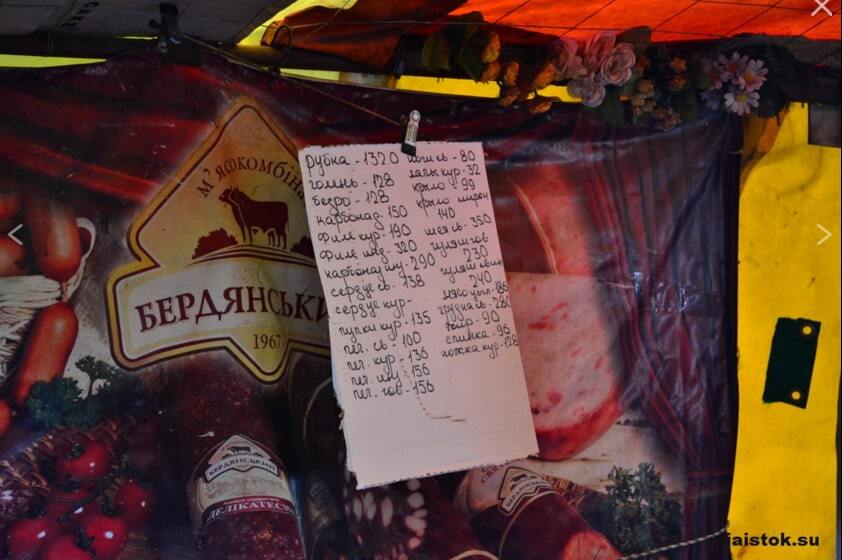 М'ЯСОКОМБІНА
БЕРДЯНСЬКИ
1967
рубка - 1320
голень - 128
бедро - 128
карбонад - 150
филе кур - 190
филе инд - 320
карбонад инд - 290
сердце св - 138
сердце кур -
пупки кур - 135
печ. св - 100
печ. кур - 136
печ. инд - 156
печ. гов - 156
80
лапы кур - 32
крыло - 99
крыло
140
шея св - 350
гуляш гов
230
гуляш свин
240
мясо
грудка св - 280
жир - 90
спинка - 96
ножка кур - 128
БЕРДЯНСЬКИЙ
ДЕЛІКАТЕС
БЕРДЯНСЬ
iaistok.su